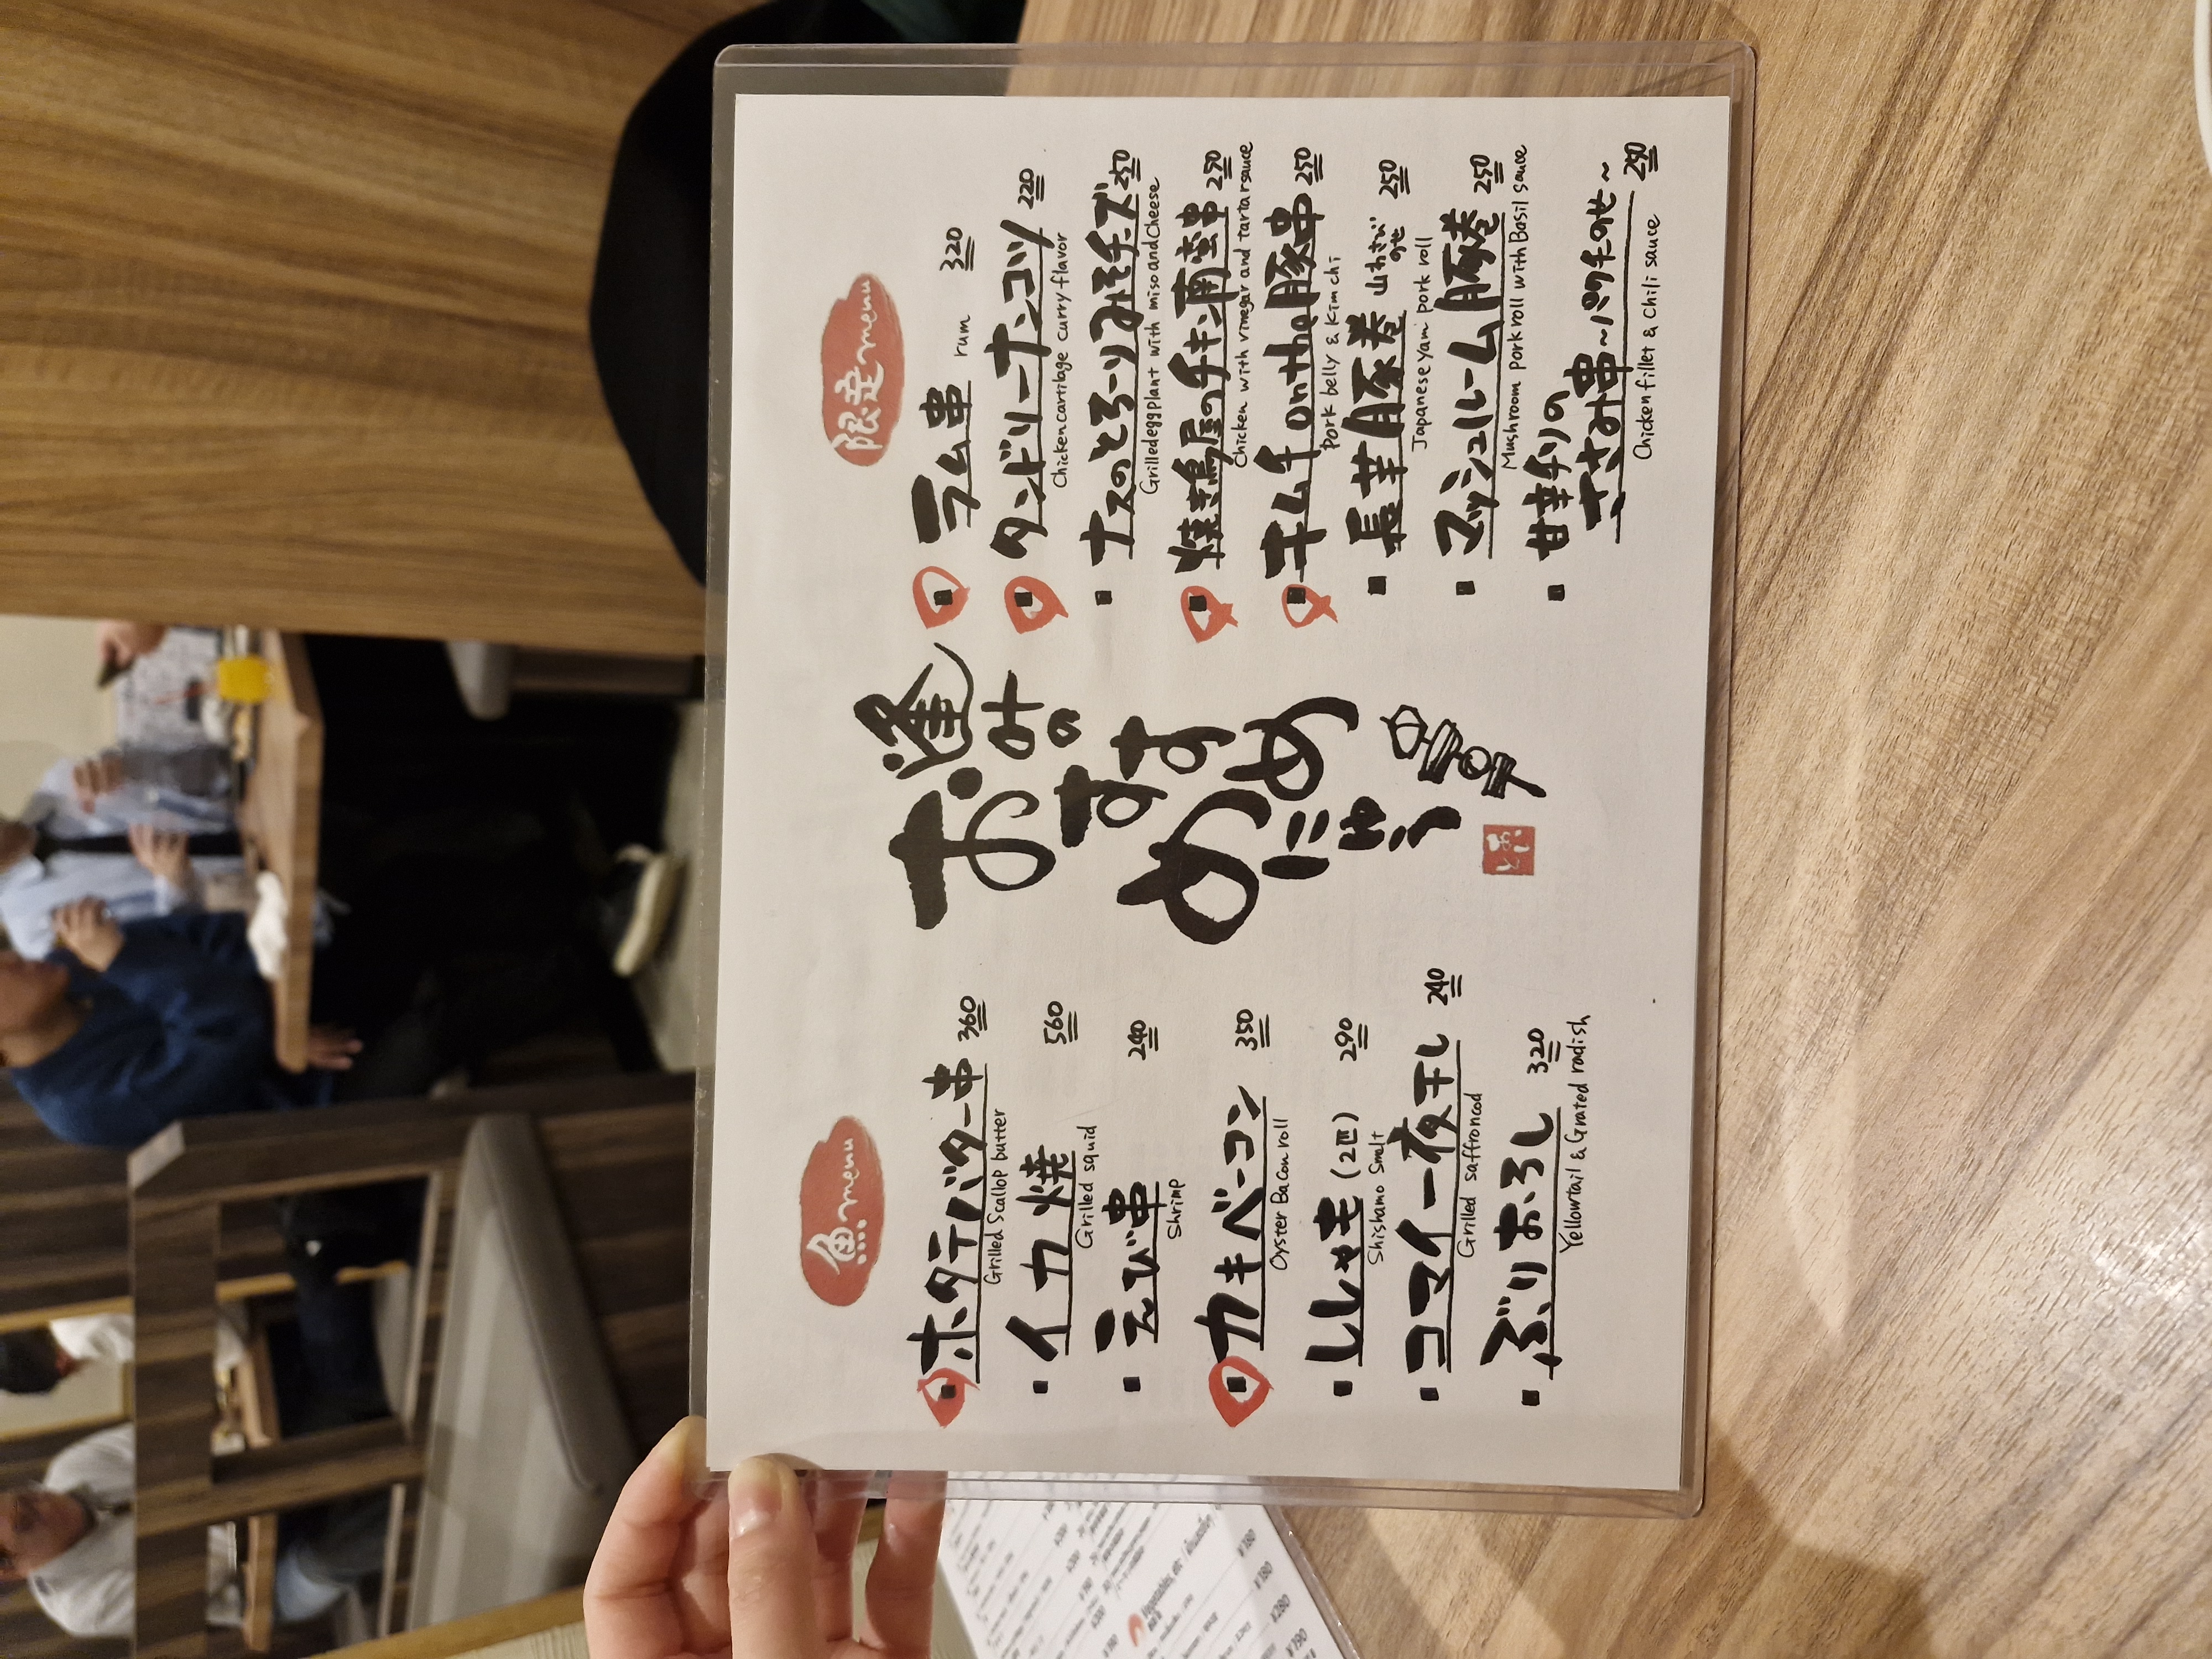 魚menu
ホタテバター串 360
Grilled Scallop butter
イカ焼 560
Grilled squid
えび串 240
Shrimp
カキベーコン 350
Oyster Bacon roll
ししゃも(2匹) 290
Shishamo Smelt
コマイ一夜干し 240
Grilled saffroncod
ぶりおろし 320
Yellowtail & Grated radish
お逢
みの
おすす
め
めにゅう
限定menu
ラム串 rum 320
タンドリーナンコツ 220
Chicken cartilage curry flavor
ナスのとろーりみそチーズ 250
Grilled eggplant with miso and Cheese
焼き鳥屋のチキン南蛮串 250
Chicken with vinegar and tartar sauce
キムチ on the 豚串 250
Pork belly & Kimchi
長芋豚巻 山わさびのせ 250
Japanese yam pork roll
マッシュルーム豚巻 250
Mushroom pork roll with Basil sauce
甘辛チリの
ささみ串~パクチーのせ~ 250
Chicken fillet & Chili sauce
Vegetables, etc
¥180
¥180
¥280
¥190